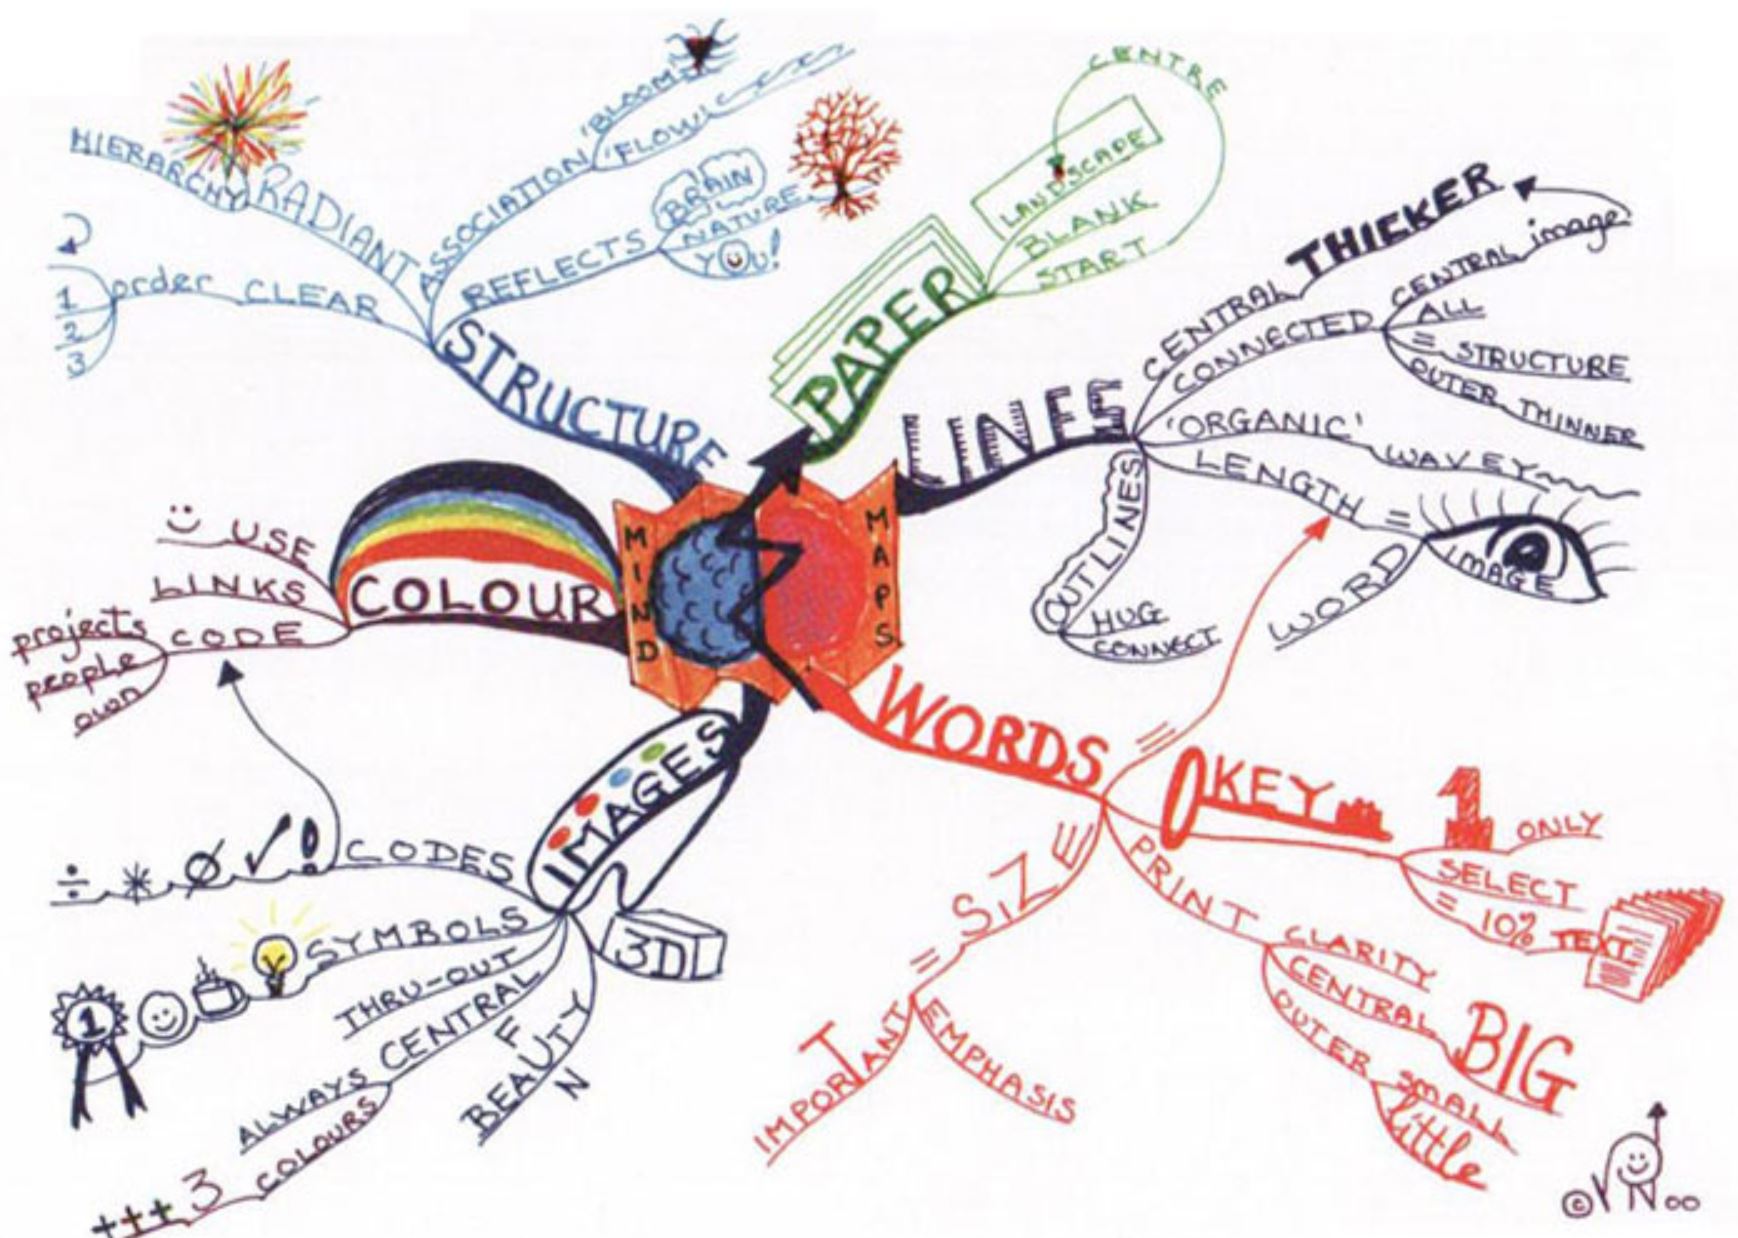 MIND
MAPS
PAPER
LANDSCAPE
BLANK
START
CENTRE
LINES
CENTRAL THICKER
CONNECTED
CENTRAL image
ALL
= STRUCTURE
OUTER THINNER
'ORGANIC' WAVEY
LENGTH =
WORD
IMAGE
OUTLINES
HUG
CONNECT
WORDS
=
KEY
1 ONLY
SELECT
= 10% TEXT
PRINT
CLARITY
CENTRAL BIG
OUTER small
little
SIZE
=
IMPORTANT
EMPHASIS
IMAGES
3D
BEAUTY
FUN
CENTRAL
ALWAYS
COLOURS 3 +++
THRU-OUT
SYMBOLS
1
CODES
! ✓ Ø * ÷
COLOUR
USE
LINKS
CODE
projects
people
own
STRUCTURE
CLEAR order
1
2
3
RADIANT
HIERARCHY
ASSOCIATION
'BLOOM'
'FLOW'
REFLECTS
BRAIN
NATURE
YOU!
©